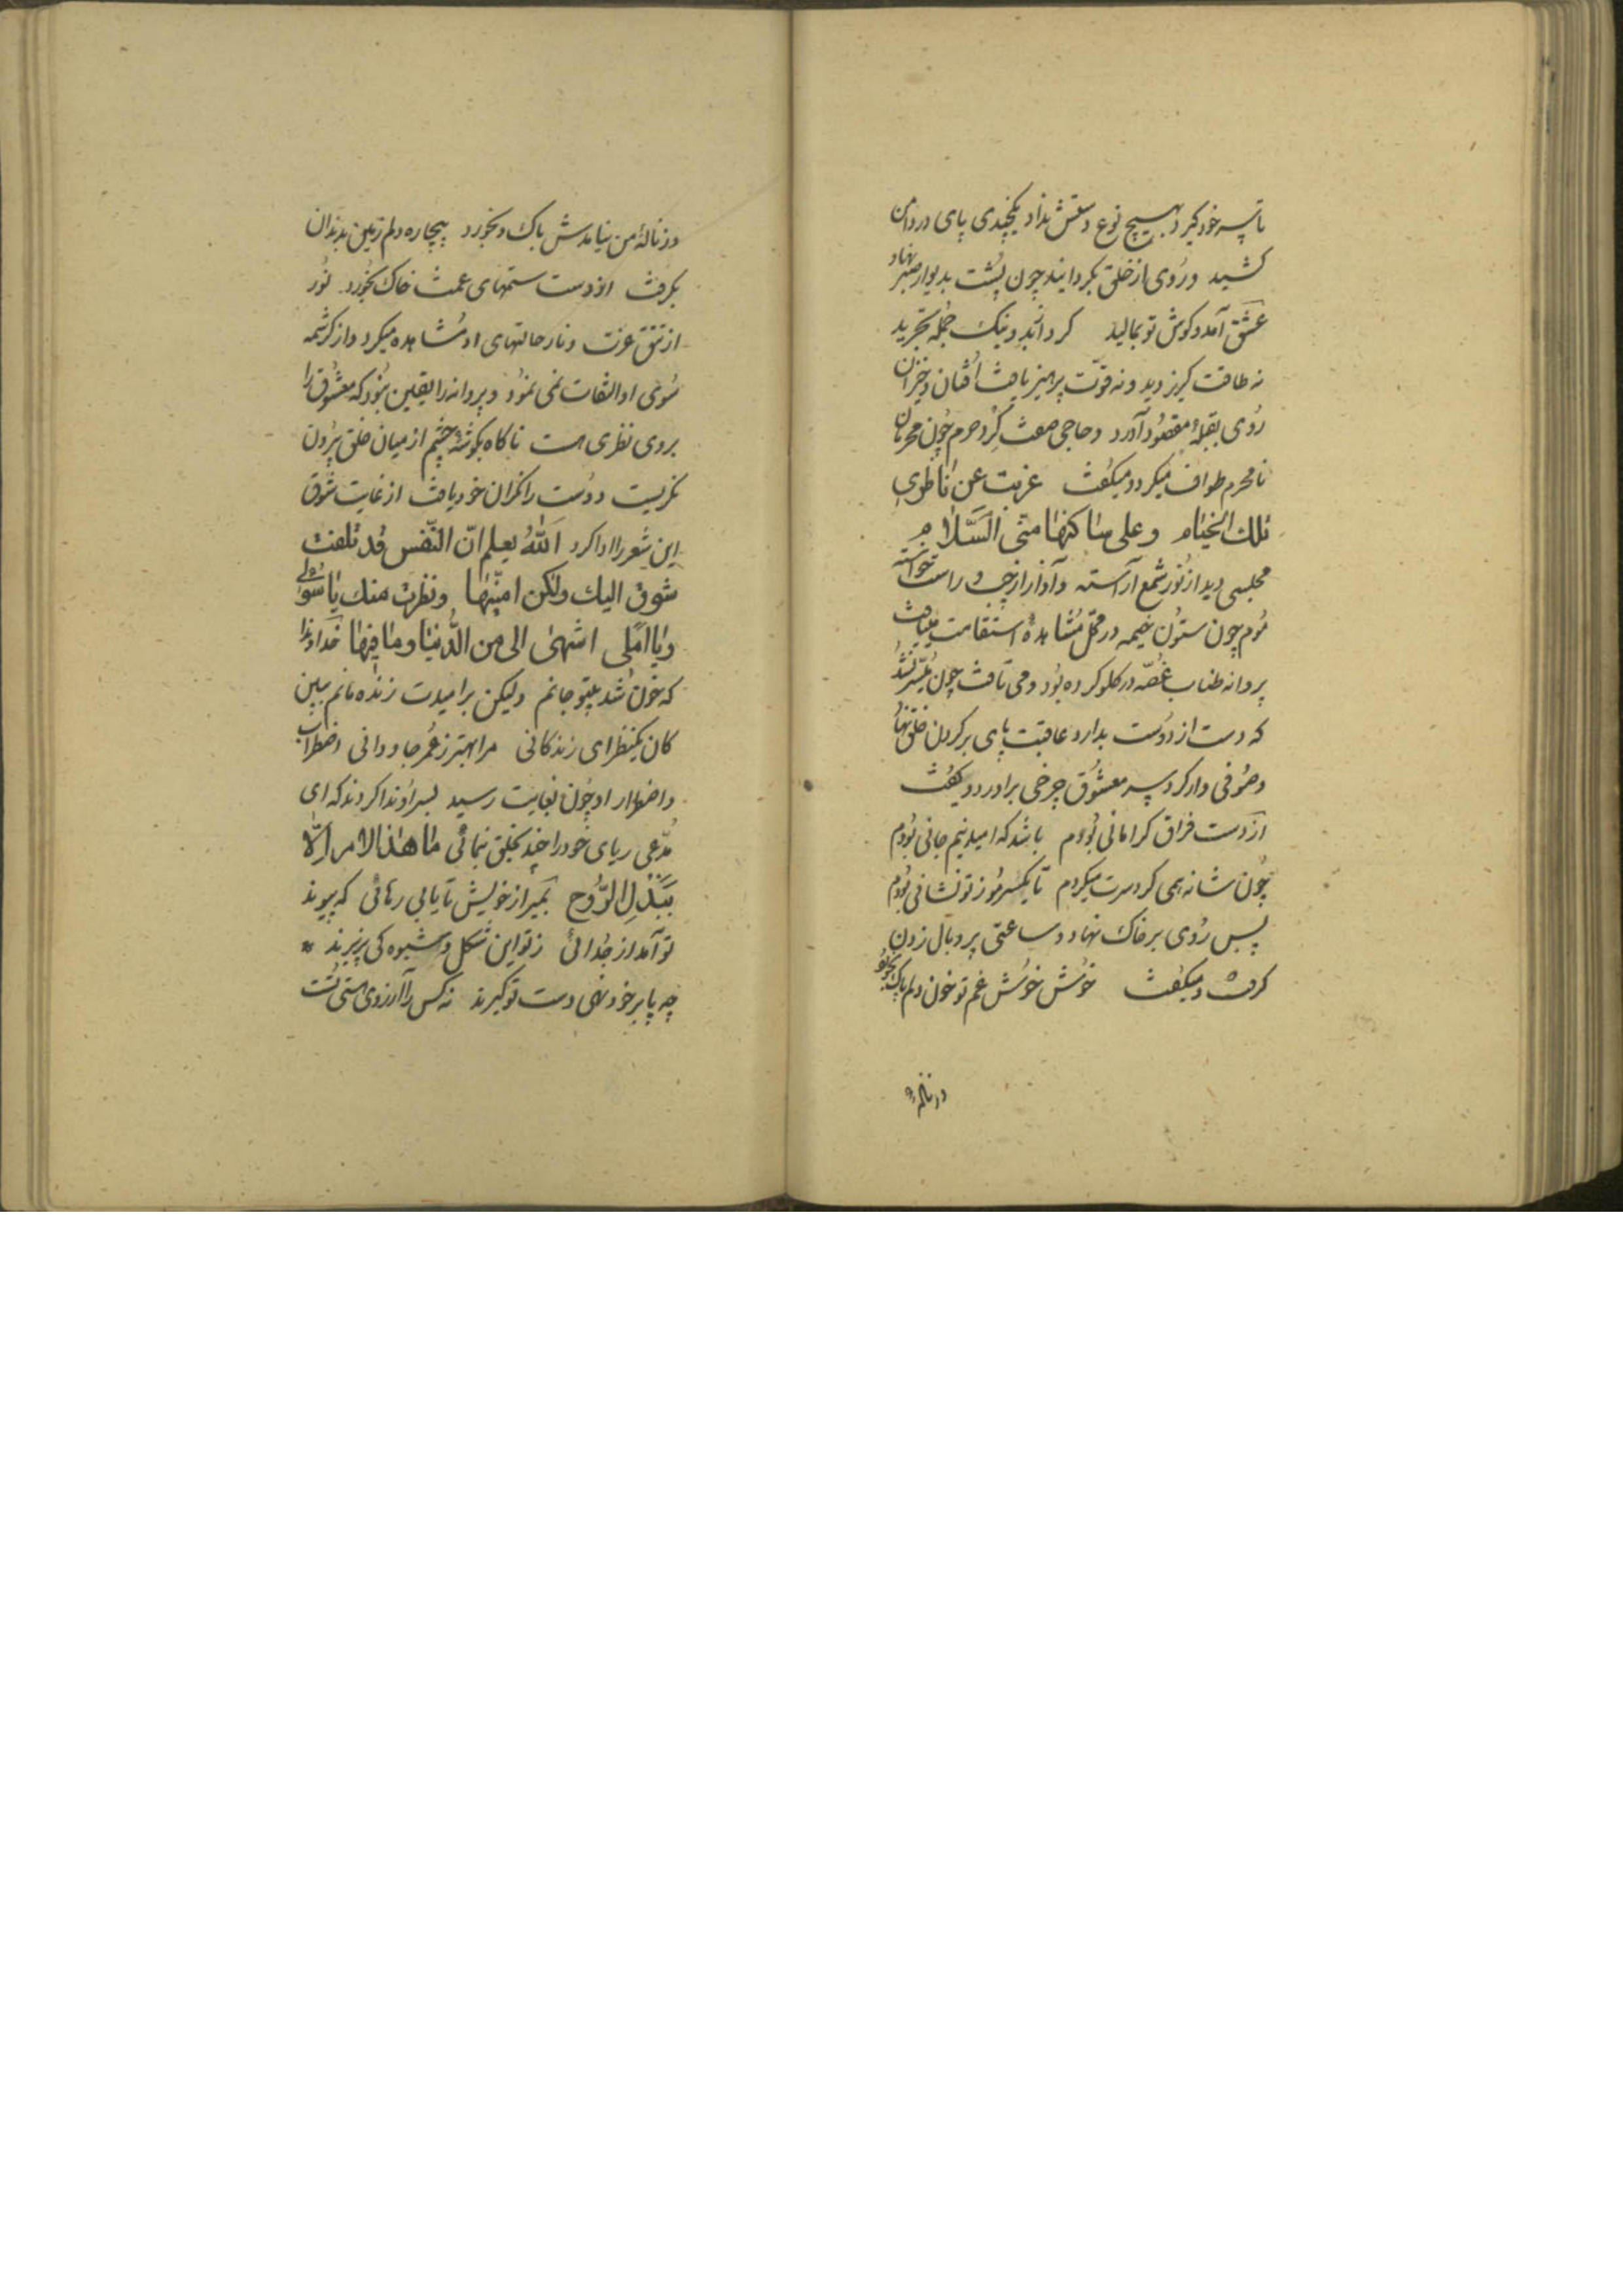 تا پسه خود گیرد بهیچ نوع دستش نداد یکچندی پای در دامن
کشید و روی از خلق بگردانید چون پشت بدیوار صبر نهاد
عشق آمد و گوش تو بمالید گرد آند و نیک جمله تجرید
نه طاقت گریز دید و نه قوت پرهیز یافت افتان و خیزان
روی بقبله مقصود آورد و حاجی صفت گرد حرم چون محرمان
نامحرم طواف میکرد و میگفت عزبت عن ناظری
تلك الخیام وعلی ساکنها منّی السّلام
مجلسی دید از نور شمع آراسته و آواز از چپ و راست خواسته
موم چون ستون خیمه در محل مشاهده استقامت مییافت
پروانه طناب غصّه در گلو کرده بود و می تافت چون میسّر نشد
که دست از دوست بدارد عاقبت پای بر گردن خلق نهاد
و صوفی وار گرد سر معشوق چرخی برآورد و میگفت
از دست فراق گر امانی بودم باشد که امید نیم جانی بودم
چون شانه همی گرد سرت میگردم تا یکسر مو ز تو نشانی بودم
پس روی بر خاک نهاد و ساعتی پر و بال زدن
گرفت و میگفت خوش خوش غم تو خون دلم پاک بخورد
در ناله
وز ناله من نیامدش باک و بخورد بیچاره دلم زمین بدندان
بگرفت از دست ستمهای غمت خاک بخورد نور
از تتق عزت و ناز حالتهای او مشاهده میکرد و از کرشمه
سوی او التفات نمی نمود و پروانه را یقین بود که معشوق را
بروی نظری هست ناگاه بگوشه چشم از میان خلق برون
نگریست و دوست را نگران خود یافت از غایت شوق
این شعر را ادا کرد الله یعلم انّ النّفس قد تلفت
شوق الیك ولکن امنّیها ونظرة منك یا سؤلی
ویا املی اشهی الی من الدّنیا وما فیها خداوندا
که خون شد بیتو جانم ولیکن بر امیدت زنده مانم ببین
کان یکنظر ای زندگانی مرا بهتر ز عمر جاودانی اضطراب
و اضطرار او چون بغایت رسید بسر او ندا کردند که ای
مدّعی ریای خود را چند بخلق نمائی ما هذا لامر الّا
ببذل الرّوح بمیر از خویش تا یابی رهائی که پیوند
تو آمد از جدائی ز تو این شکل و شیوه کی پذیرند
چه پا بر خود نهی دست تو گیرند نه کس را آرزوی هستی تست